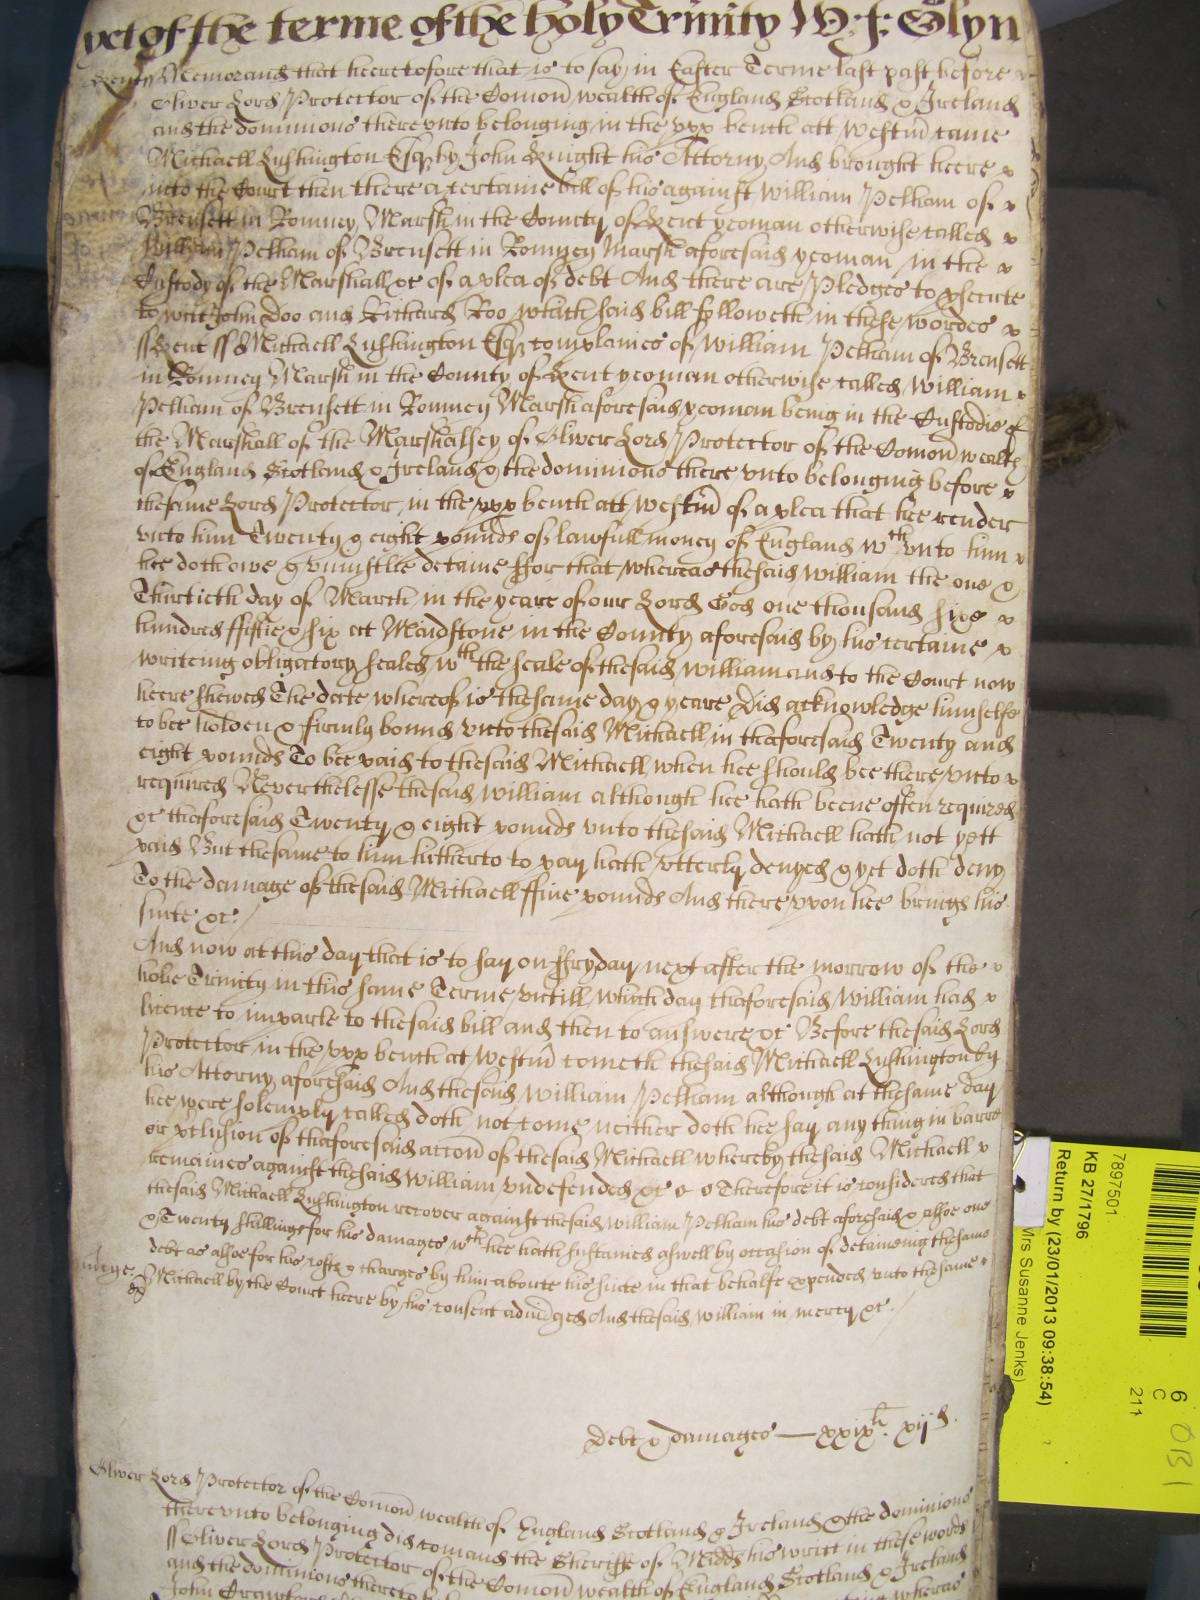 yet of the terme of the holy Trinity W: J: Glyn
Kent Memorand that heeretofore that is to say in Easter Terme last past before
Oliver Lord Protector of the Comon wealth of England Scotland & Ireland
and the dominions there unto belonging in the upp bench att Westm came
Michaell Lushington Esq by John Knight his Attorny And brought heere
into the Court then there a certaine bill of his against William Pelham of
Brensett in Romney Marsh in the County of Kent yeoman otherwise called
William Pelham of Brensett in Romney Marsh aforesaid yeoman in the
Custody of the Marshall &c of a plea of debt And there are Pledges to psecute
to witt John Doo and Richard Roo which said bill followeth in these wordes
ss Kent ss Michaell Lushington Esq complaines of William Pelham of Brensett
in Romney Marsh in the County of Kent yeoman otherwise called William
Pelham of Brensett in Romney Marsh aforesaid yeoman being in the Custodie of
the Marshall of the Marshalsey of Oliver Lord Protector of the Comon wealth
of England Scotland & Ireland & the dominions there unto belonging before
the same Lord Protector in the upp bench att Westm of a plea that hee render
unto him Twenty & eight pounds of lawfull money of England wth unto him
hee doth owe & uniustlie detaine ffor that whereas the said William the one &
Thirtieth day of March in the yeare of our Lord God one thousand sixe
hundred ffiftie & six att Maidstone in the County aforesaid by his certaine
writeing obligatory sealed wth the seale of the said William and to the Court now
heere shewed The date whereof is the same day & yeare Did acknowledge himselfe
to bee holden & firmly bound unto the said Michaell in thaforesaid Twenty and
eight pounds To bee paid to the said Michaell when hee should bee there unto
required Neverthelesse the said William although hee hath beene often required
&c thaforesaid Twenty & eight pounds unto the said Michaell hath not yett
paid But the same to him hitherto to pay hath utterly denyed & yet doth deny
To the damage of the said Michaell ffive pounds And there upon hee brings his
suite &c
And now at this day that is to say on ffryday next after the morrow of the
holie Trinity in this same Terme untill which day thaforesaid William had
licence to imparle to the said bill and then to answere &c Before the said Lord
Protector in the upp bench at Westm cometh the said Michaell Lushington by
his Attorny aforesaid And the said William Pelham although at the same day
hee were solemply called doth not come neither doth hee say any thing in barre
or pclusion of thaforesaid accon of the said Michaell whereby the said Michaell
remaines against the said William undefended &c Therefore it is considered that
the said Michaell Lushington recover against the said William Pelham his debt aforesaid & alsoe one
& Twenty shillings for his damages wth hee hath susteined aswell by occasion of detaineing the same
debt as alsoe for his costs & charges by him aboute his suite in that behalfe expended unto the same
Michaell by the Court heere by his consent adiudged And the said William in mercy &c
Debt & damages — xxixl. xijd.
Oliver Lord Protector of the Comon wealth of England Scotland & Ireland & the dominions
there unto belonging did comand the Sheriffe of Midds his writt in these words
ss Oliver Lord Protector of the Comon wealth of England Scotland & Ireland
and the dominions thereto
John
7897501
KB 27/1796
Return by (23/01/2013 09:38:54)
Mrs Susanne Jenks)
6
C
211